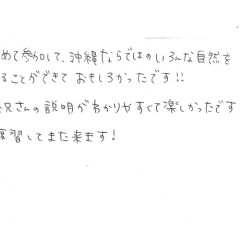 めて参加して、沖縄ならではのいろんな自然を
ることができて おもしろかったです!!
兄さんの説明がわかりやすくて楽しかったです
習してまた来ます!